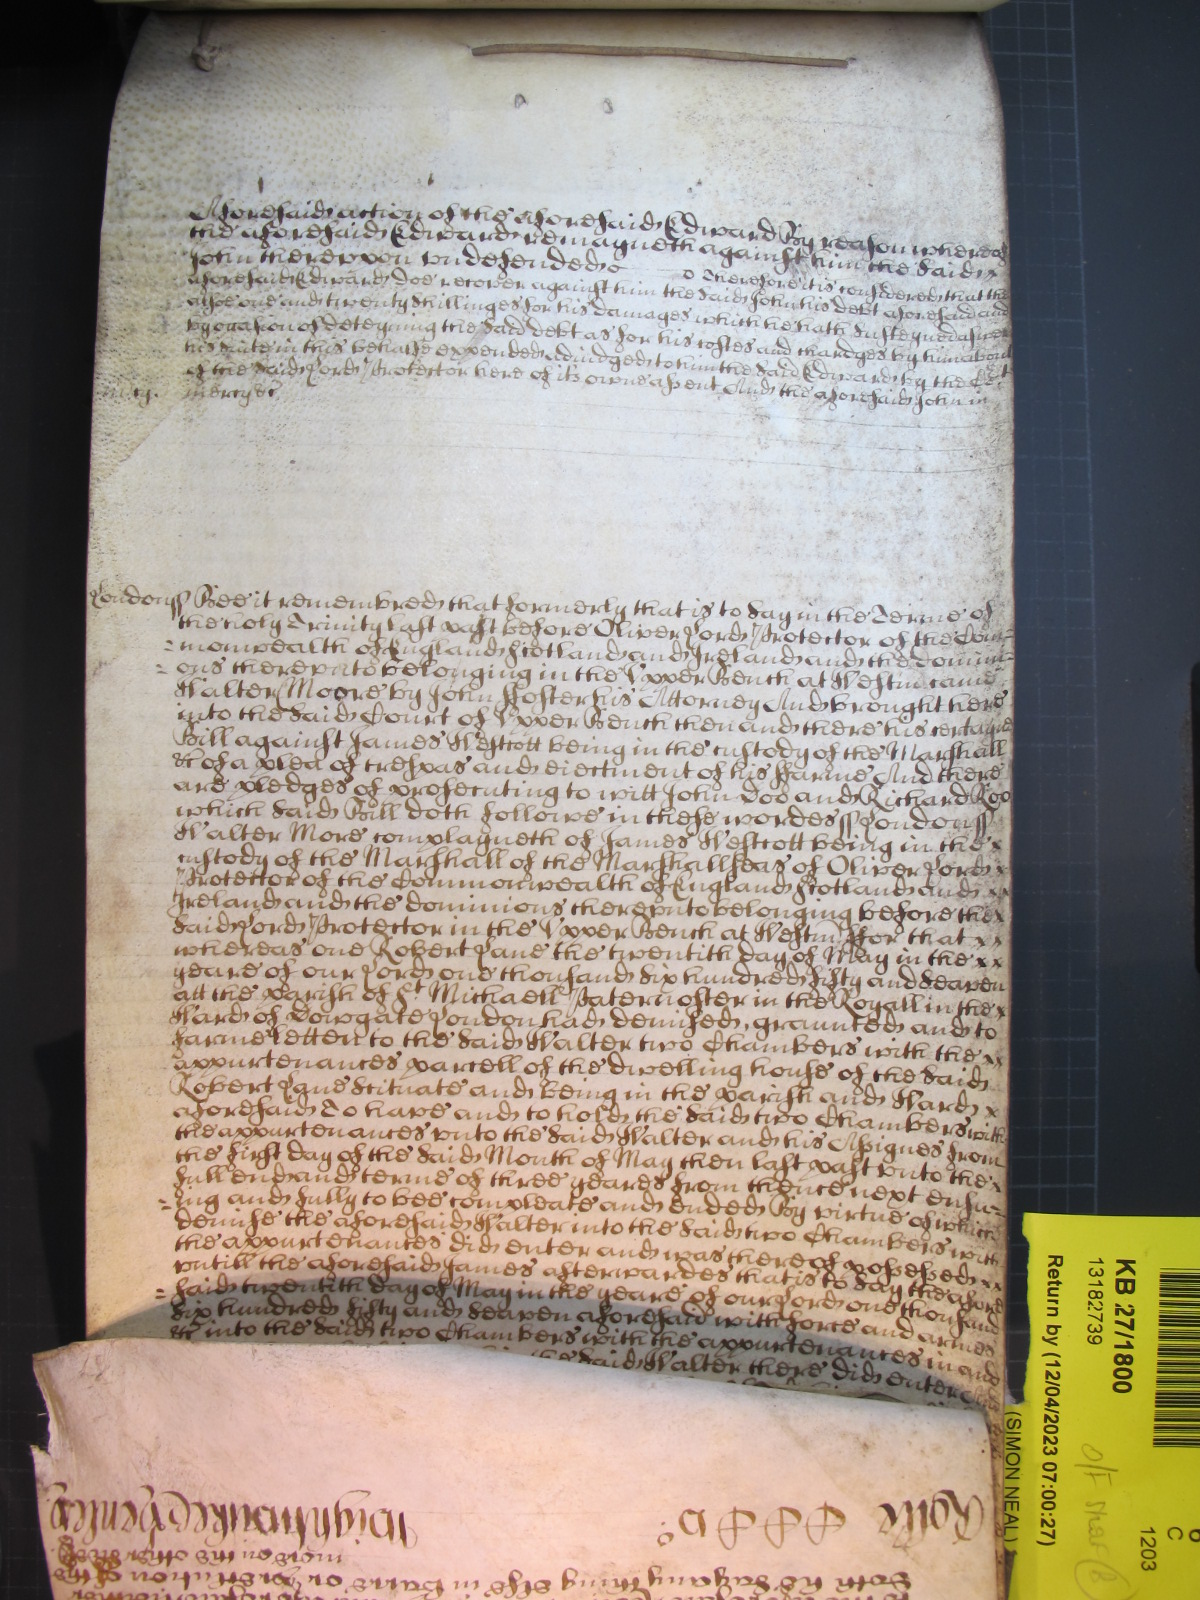 Aforesaid action of the aforesaid Edward By reason whereof
the aforesaid Edward remayneth against him the said
John thereupon undefended Therefore it is considered that the
aforesaid Edward doe recover against him the said John his debt aforesaid and
alsoe one and twenty shillinges for his damages which he hath susteyned aswell
by occasion of deteyning the said debt as for his costes and chardges by him about
his suite in this behalfe expended adiudged to him the said Edward by the Court
of the said Lord Protector here of its owne assent And the aforesaid John in
mercy &c
Londonss Bee it remembred that formerly that is to say in the Terme of
the holy Trinity last past before Oliver Lord Protector of the Com=
=monwealth of England Scotland and Ireland and the domini=
=ons thereunto belonging in the Upper Bench at Westm came
Walter Moore by John Foster his Attorney And brought here
into the said Court of Upper Bench then and there his certayne
Bill against James Westcott being in the custody of the Marshall
&c of a plea of trespas and eiectment of his ffarme And there
are pledges of prosecuting to witt John Doo and Richard Roo
which said Bill doth followe in these wordes ss Londonss
Walter More complayneth of James Westcott being in the x
custody of the Marshall of the Marshallseas of Oliver Lord x
Protector of the Commonwealth of England Scotland and x
Ireland and the dominions thereunto belonging before the x
said Lord Protector in the Upper Bench at Westm ffor that x x
whereas one Robert Lane the twentith day of May in the x x
yeare of our Lord one thousand six hundred fifty and seaven
att the parish of St Michaell Paternoster in the Royall in the x
Ward of Dowgate London had demised, graunted and to
farme letten to the said Walter two Chambers with the x x
appurtenances parcell of the dwelling house of the said
Robert Lane scituate and being in the parish and Ward x
aforesaid To have and to hold the said two Chambers with
the appurtenances unto the said Walter and his Assignes from
the first day of the said Month of May then last past unto the x
full end and terme of three yeares from thence next ensu=
=ing and fully to bee compleate and ended By virtue of which
demise the aforesaid Walter into the said two Chambers with
the appurtenances did enter and was thereof possessed x x
untill the aforesaid James afterwardes that is to say the afore
=said twentith day of May in the yeare of our Lord one thousand
six hundred fifty and seaven aforesaid with force and armes
&c into the said two Chambers with the appurtenances in and
the said Walter there did enter
KB 27/1800
13182739
Return by (12/04/2023 07:00:27)
(SIMON NEAL)
C
1203
Rolle
Wightwicke